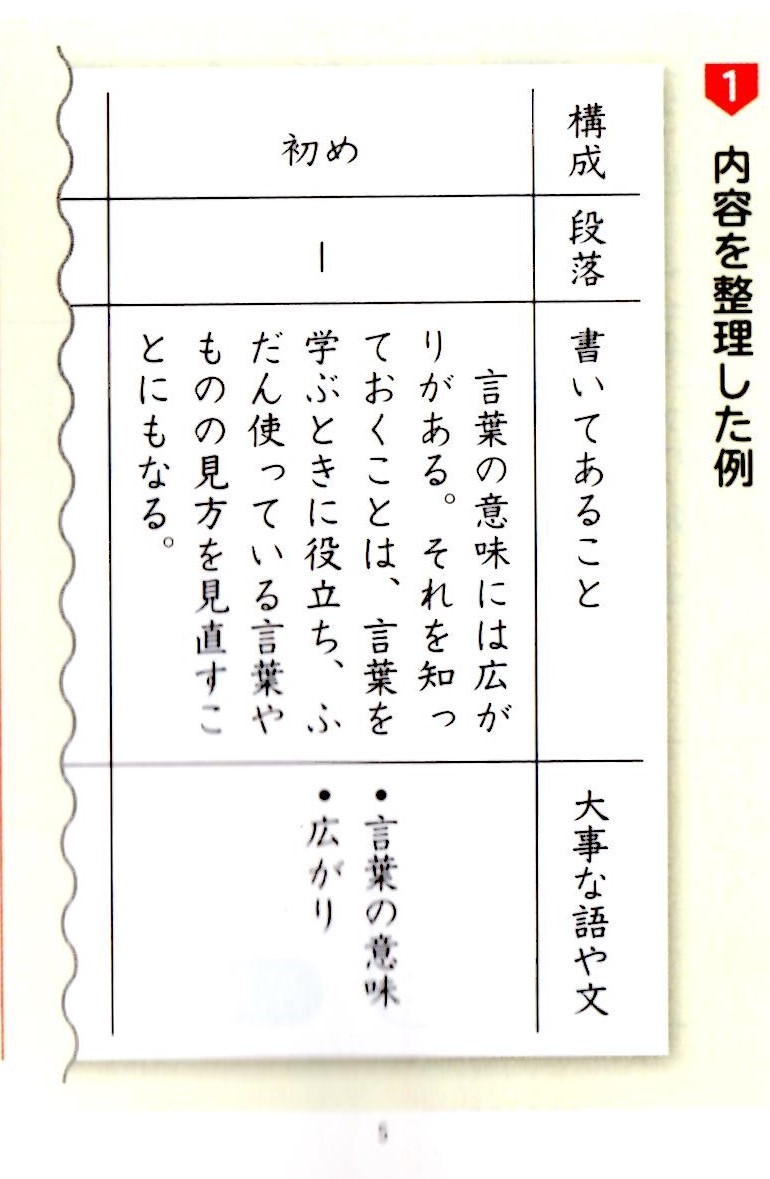 1
内容を整理した例
構成
段落
書いてあること
大事な語や文
初め
1
言葉の意味には広が
りがある。それを知っ
ておくことは、言葉を
学ぶときに役立ち、ふ
だん使っている言葉や
ものの見方を見直すこ
とにもなる。
●言葉の意味
●広がり